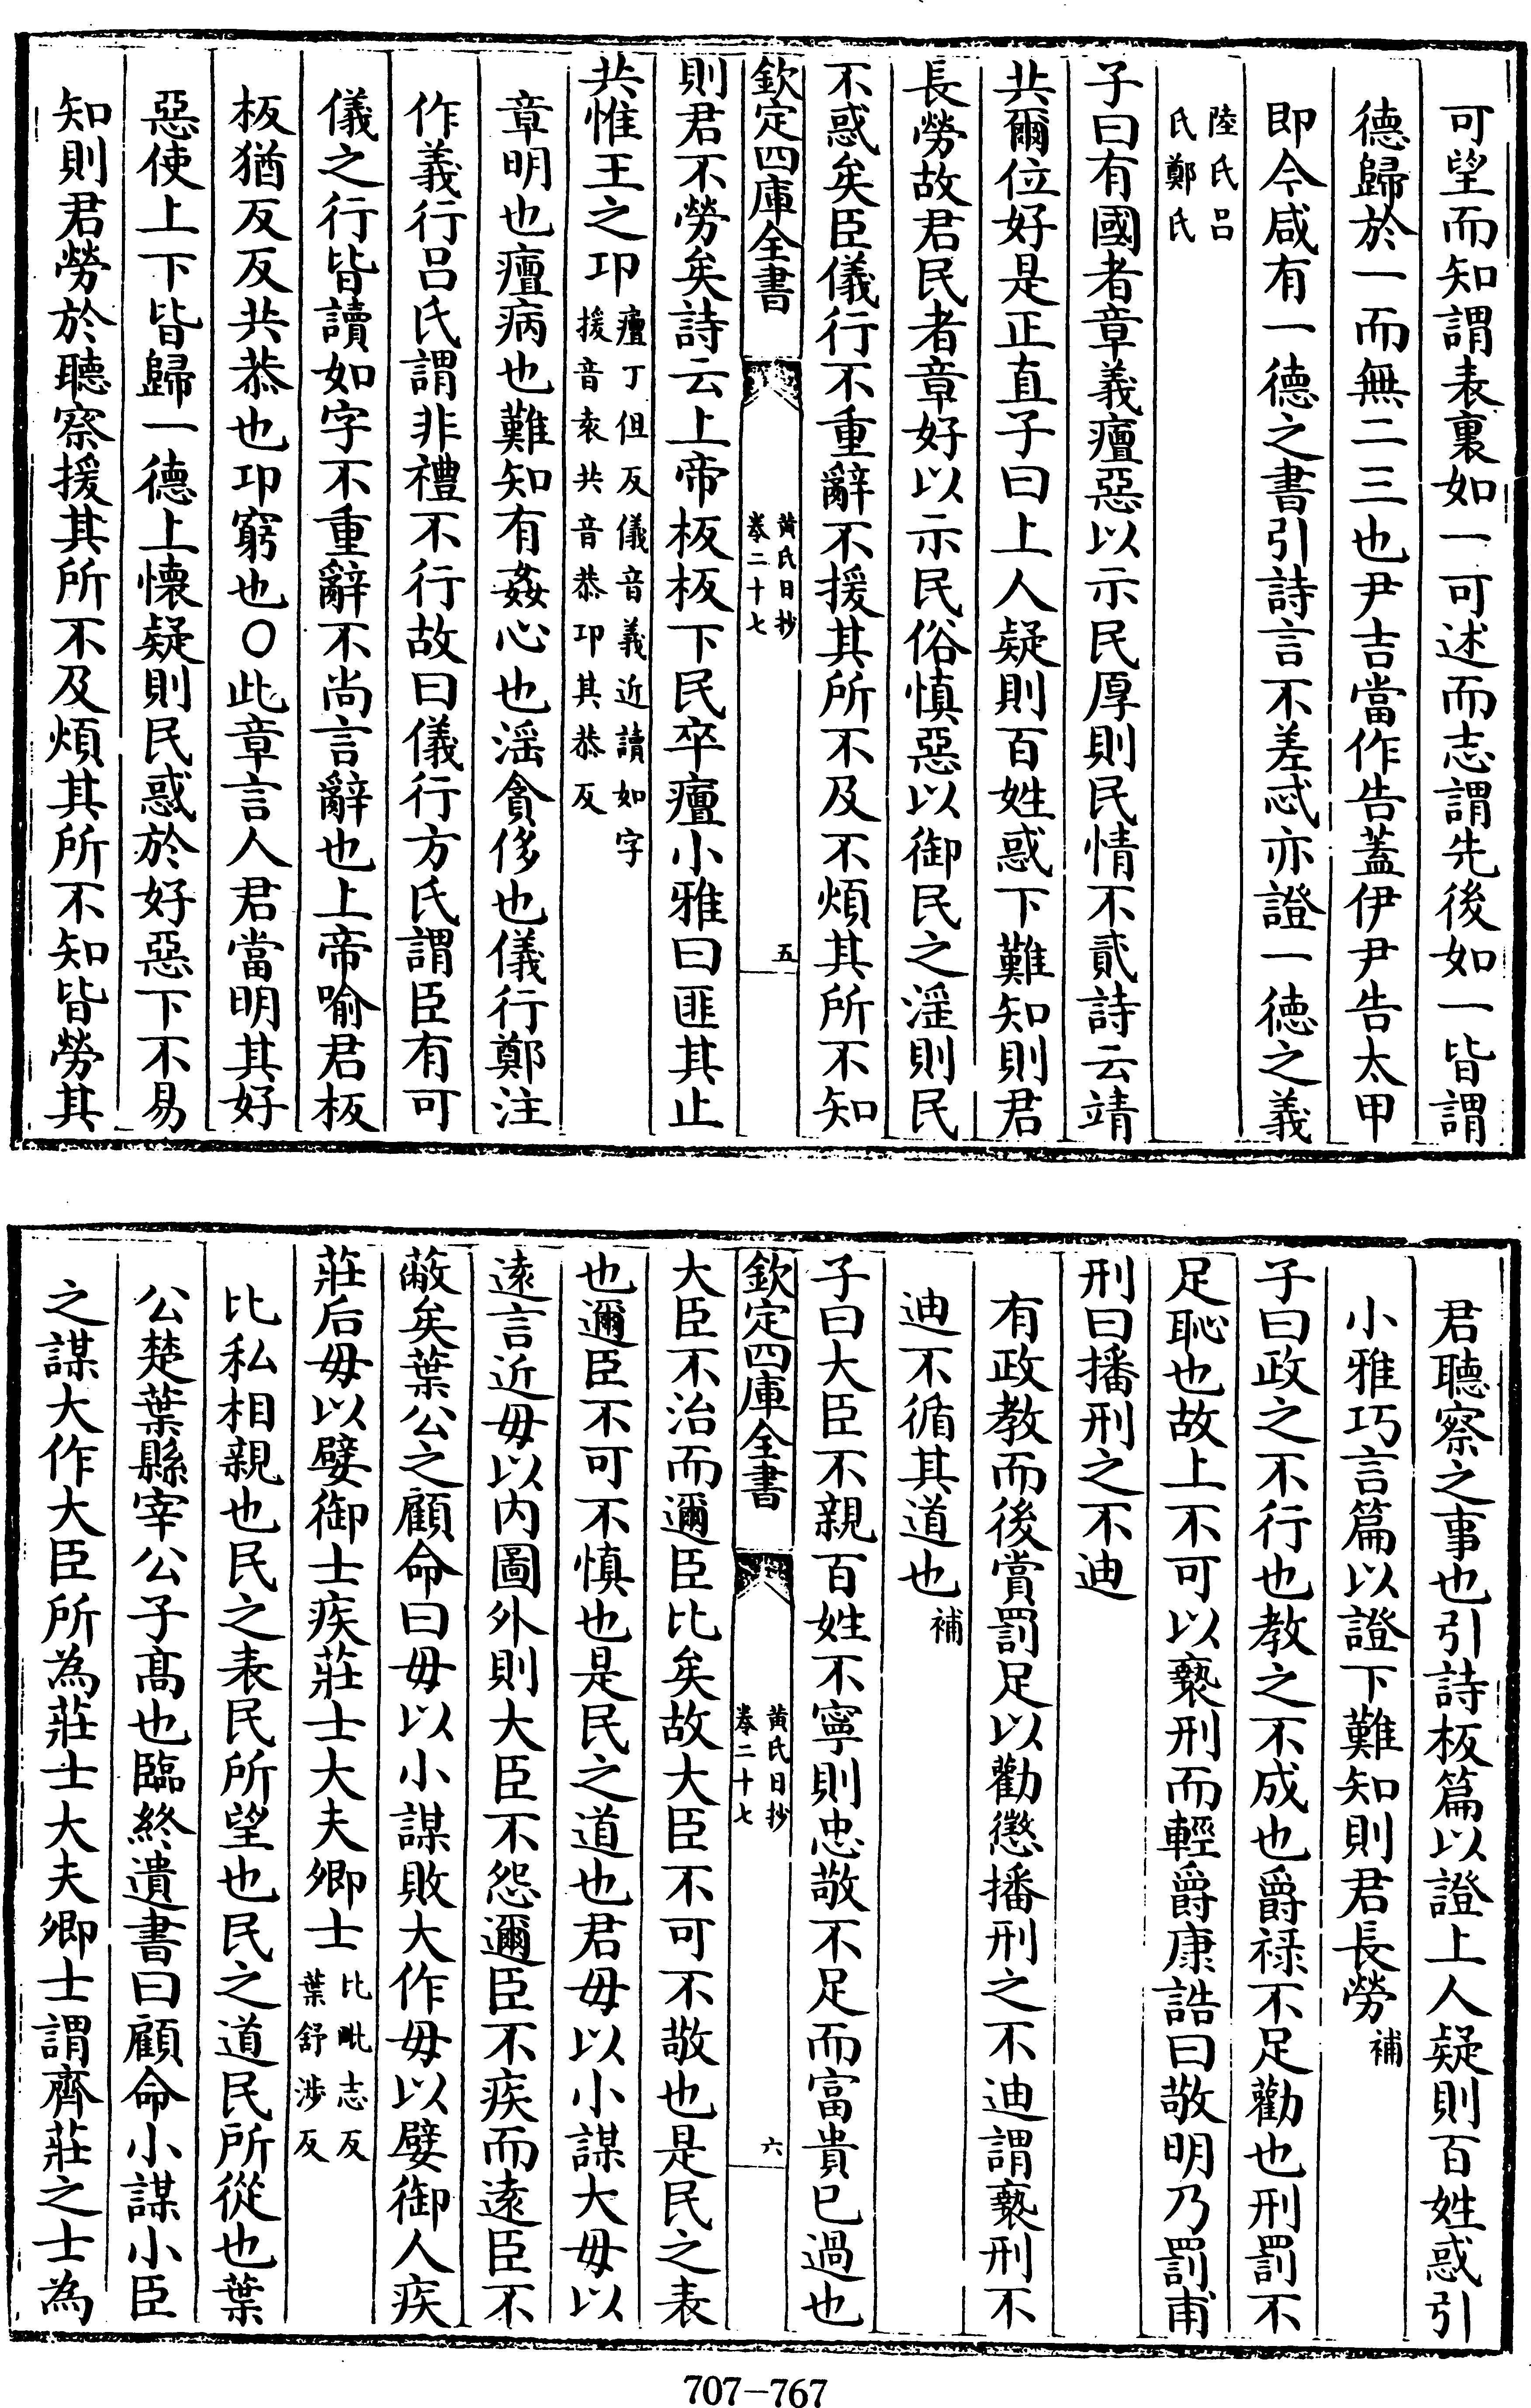 可望而知謂表裏如一可述而志謂先後如一皆謂
德歸於一而無二三也尹吉當作告蓋伊尹告太甲
即今咸有一德之書引詩言不差忒亦證一德之義
陸氏呂
氏鄭氏
子曰有國者章義癉惡以示民厚則民情不貳詩云靖
共爾位好是正直子曰上人疑則百姓惑下難知則君
長勞故君民者章好以示民俗慎惡以御民之淫則民
不惑矣臣儀行不重辭不援其所不及不煩其所不知
欽定四庫全書
黃氏日抄
卷二十七
五
則君不勞矣詩云上帝板板下民卒癉小雅曰匪其止
共惟王之卭
癉丁但反儀音義近讀如字
援音袁共音恭卭其恭反
章明也癉病也難知有姦心也淫貪侈也儀行鄭注
作義行呂氏謂非禮不行故曰儀行方氏謂臣有可
儀之行皆讀如字不重辭不尚言辭也上帝喻君板
板猶反反共恭也卭窮也〇此章言人君當明其好
惡使上下皆歸一德上懷疑則民惑於好惡下不易
知則君勞於聽察援其所不及煩其所不知皆勞其
君聽察之事也引詩板篇以證上人疑則百姓惑引
小雅巧言篇以證下難知則君長勞
補
子曰政之不行也教之不成也爵祿不足勸也刑罰不
足恥也故上不可以褻刑而輕爵康誥曰敬明乃罰甫
刑曰播刑之不迪
有政教而後賞罰足以勸懲播刑之不迪謂褻刑不
迪不循其道也
補
子曰大臣不親百姓不寧則忠敬不足而富貴已過也
欽定四庫全書
黃氏日抄
卷二十七
六
大臣不治而邇臣比矣故大臣不可不敬也是民之表
也邇臣不可不慎也是民之道也君毋以小謀大毋以
遠言近毋以內圖外則大臣不怨邇臣不疾而遠臣不
蔽矣葉公之顧命曰毋以小謀敗大作毋以嬖御人疾
莊后毋以嬖御士疾莊士大夫卿士
比毗志反
葉舒涉反
比私相親也民之表民所望也民之道民所從也葉
公楚葉縣宰公子高也臨終遺書曰顧命小謀小臣
之謀大作大臣所為莊士大夫卿士謂齊莊之士為
707-767